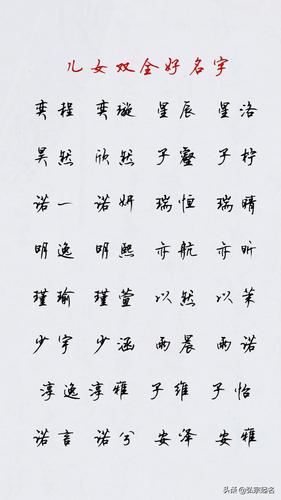 儿女双全好名字
奕程 奕璇 星辰 星洛
昊然 欣然 子壑 子柠
诺一 诺妍 瑞恒 瑞晴
明逸 明熙 亦航 亦昕
瑾瑜 瑾萱 以然 以茉
少宇 少涵 雨晨 雨诺
淳逸 淳雅 子维 子怡
诺言 诺兮 安泽 安雅
头条@弘宗起名